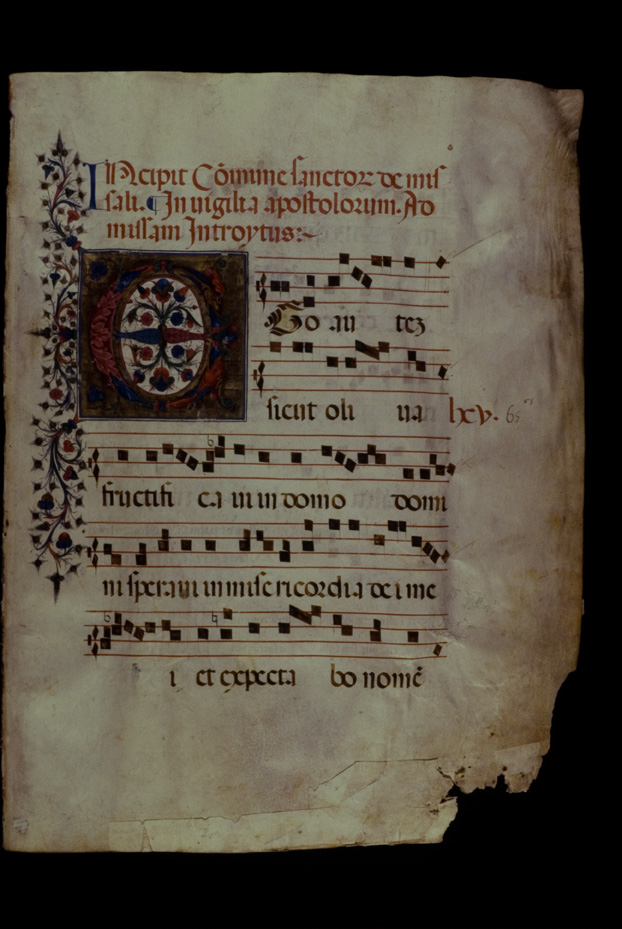 INcipit Cōmune sanctoꝝ de mis
sali. ¶ In uigilia apostolorum. Ad
missam Introytus:~
EGo au tez
sicut oli ua lxv. 65
fructifi ca ui in domo domi
ni speraui in mise ricordia de i me
i et expecta bo nomē